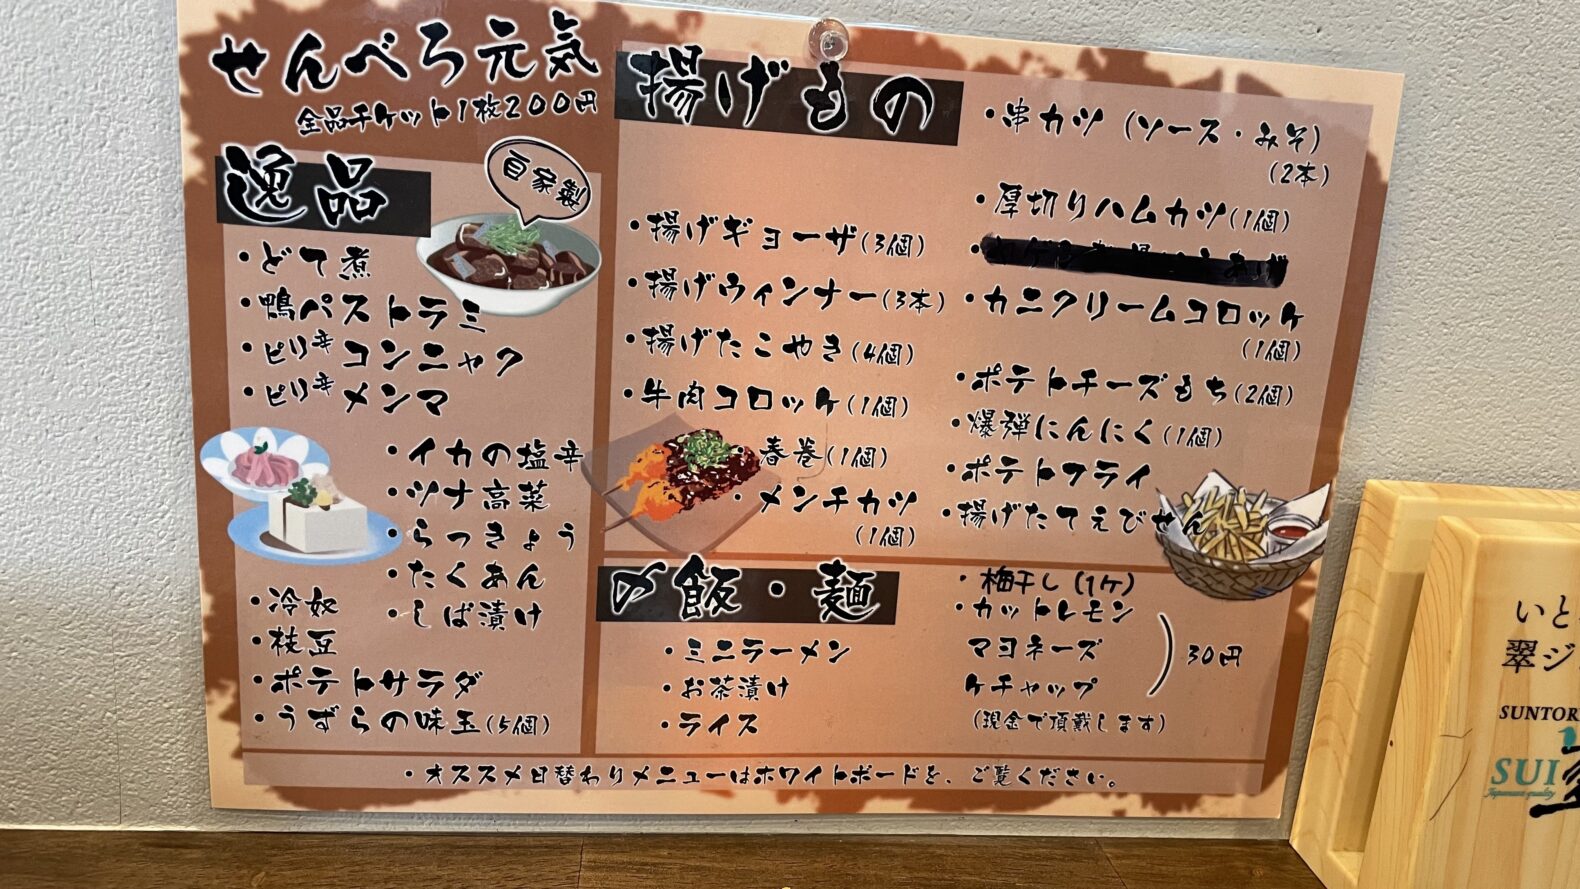 せんべろ元気
全品チケット1枚200円
逸品
自家製
・どて煮
・鴨パストラミ
・ピリ辛コンニャク
・ピリ辛メンマ
・イカの塩辛
・ツナ高菜
・らっきょう
・たくあん
・しば漬け
・冷奴
・枝豆
・ポテトサラダ
・うずらの味玉(5個)
揚げもの
・揚げギョーザ(3個)
・揚げウィンナー(3本)
・揚げたこやき(4個)
・牛肉コロッケ(1個)
・春巻(1個)
・メンチカツ
(1個)
・串カツ(ソース・みそ)
(2本)
・厚切りハムカツ(1個)
・カニクリームコロッケ
(1個)
・ポテトチーズもち(2個)
・爆弾にんにく(1個)
・ポテトフライ
・揚げたてえびせん
〆飯・麺
・ミニラーメン
・お茶漬け
・ライス
・梅干し(1ケ)
・カットレモン
マヨネーズ
ケチャップ
30円
(現金で頂戴します)
・オススメ日替わりメニューはホワイトボードを、ご覧ください。
いと
翠ジ
SUNTOR
SUI
Japanese quality